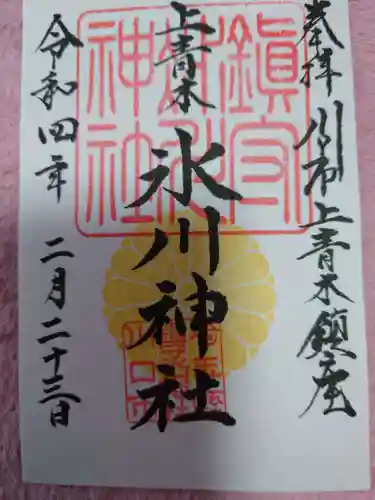 奉拝 川口市上青木鎮座
上青木
氷川神社
令和四年 二月二十三日
鎮守
氷川
神社